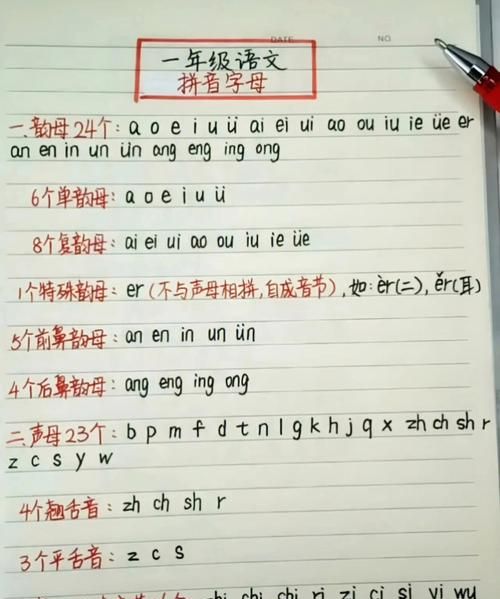 DATE
NO
一年级语文
拼音字母
一.韵母24个: a o e i u ü ai ei ui ao ou iu ie üe er
an en in un ün ang eng ing ong
6个单韵母: a o e i u ü
8个复韵母: ai ei ui ao ou iu ie üe
1个特殊韵母: er (不与声母相拼,自成音节),如: èr(二), ěr(耳)
5个前鼻韵母: an en in un ün
4个后鼻韵母: ang eng ing ong
二.声母23个: b p m f d t n l g k h j q x zh ch sh r
z c s y w
4个翘舌音: zh ch sh r
3个平舌音: z c s
zi ci si yi wu